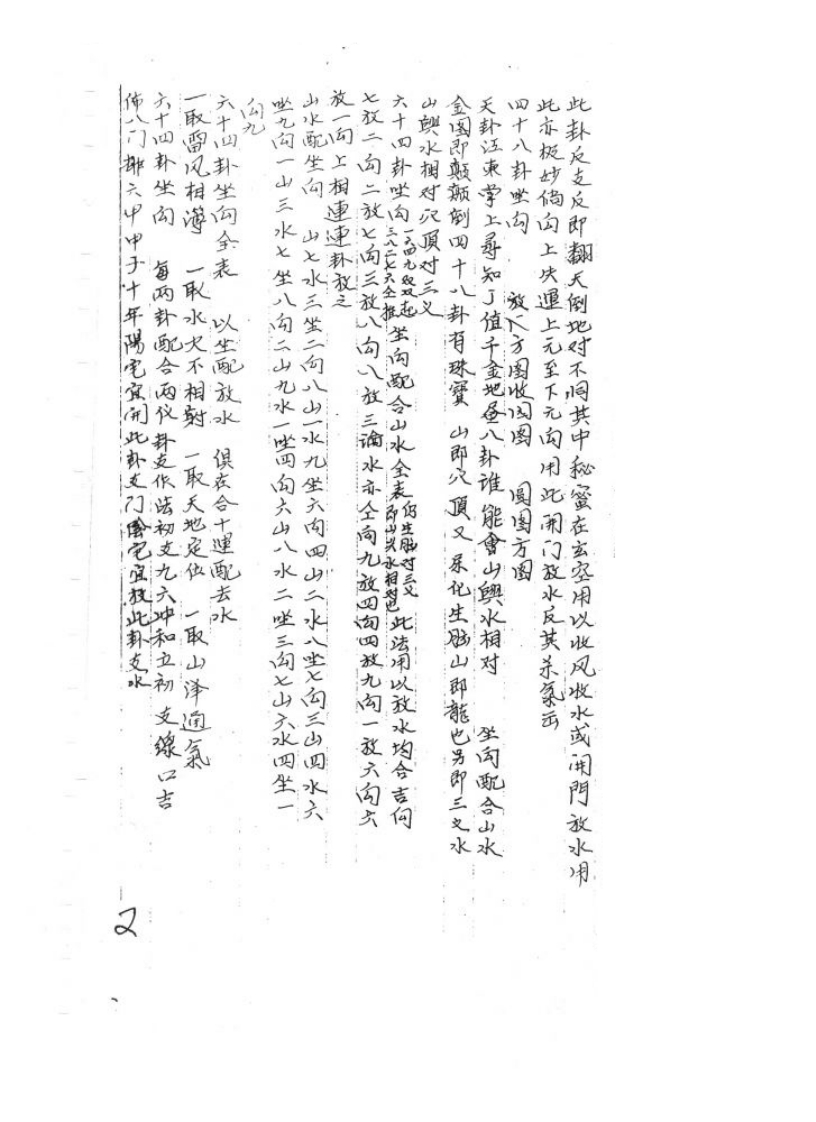 此卦反支反即翻天倒地对不同其中秘蜜在玄空用以收风收水或開門放水用
此亦极妙倘向上失運上元至下元向用此開门放水反其杀氣云
四十八卦坐向 放入方圖收圓圖 圓圖方圖
天卦江東掌上尋知了值千金地画八卦谁能會山與水相对 坐向配合山水
金图即颠颠倒四十八卦有珠寶 山即穴頂又 来化生脑山即龍也另即三叉水
山與水相对穴頂对三义
六十四卦坐向一六四九双双起三八二七六仝推坐向配合山水全表 即山与水相对也 此法用以放水均合吉向
七放二向二放七向三放八向八放三論水亦仝向九放四向四放九向一放六向六
放一向上相連連卦放之
山水配坐向 山七水三坐二向八山一水九坐六向四山二水八坐七向三山四水六
坐九向一山三水七坐八向二山九水一坐四向六山八水二坐三向七山六水四坐一
向九
六十四卦坐向全表 以坐配放水 俱在合十運配去水
一取雷风相薄 一取水火不相射 一取天地定位 一取山泽通氣
六十四卦坐向 每两卦配合两仪卦支作法初支九六冲和立初 支線口吉
佈八门排六甲甲子十年陽宅宜开此卦支门陰宅宜放此卦支水
2